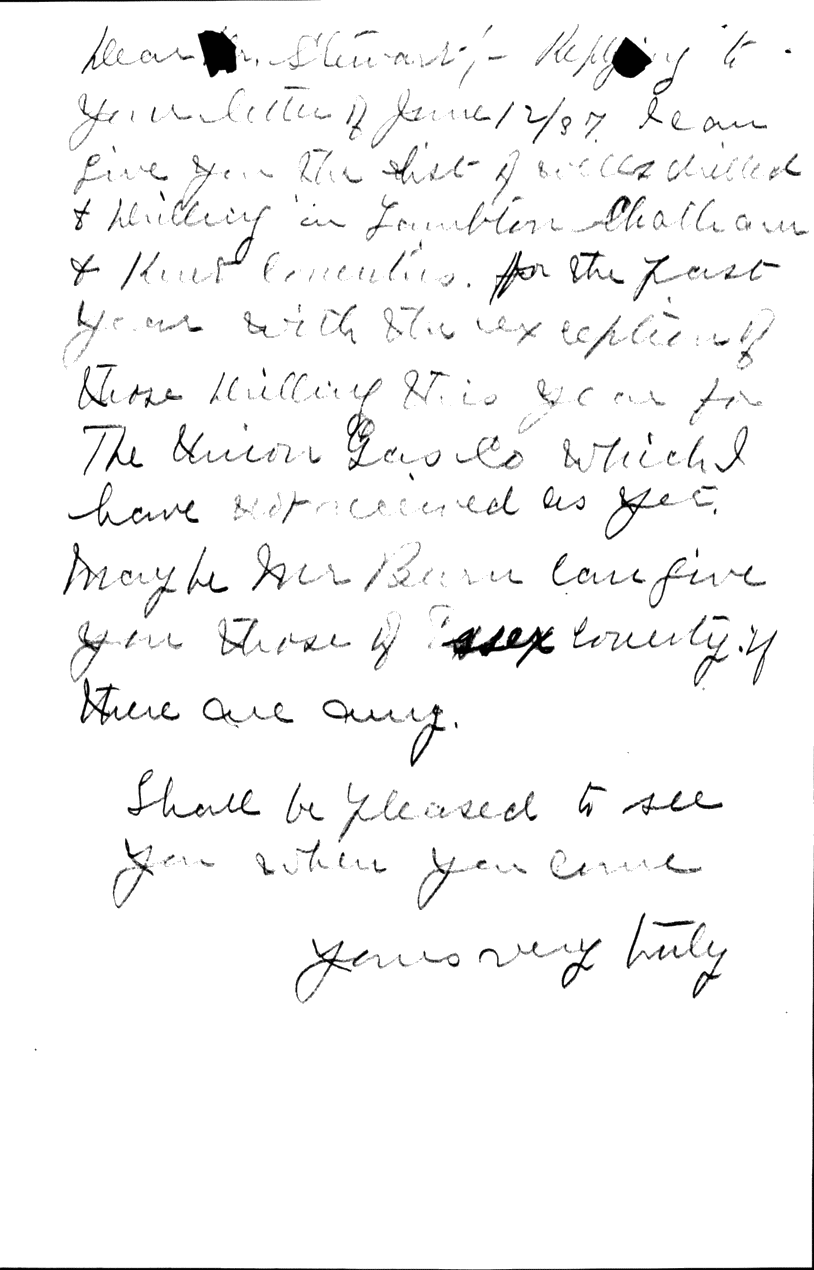 Dear Mr. Stewart;- Replying to
Your letter of June 12/37. I can
give you the list of wells drilled
& drilling in Lambton Chatham
& Kent Counties. for the past
year with the exception of
those drilling this year for
The Union Gas Co which I
have not received as yet.
Maybe Mr Burn can give
you those of Essex County. if
there are any.
Shall be pleased to see
you when you come
Yours very truly